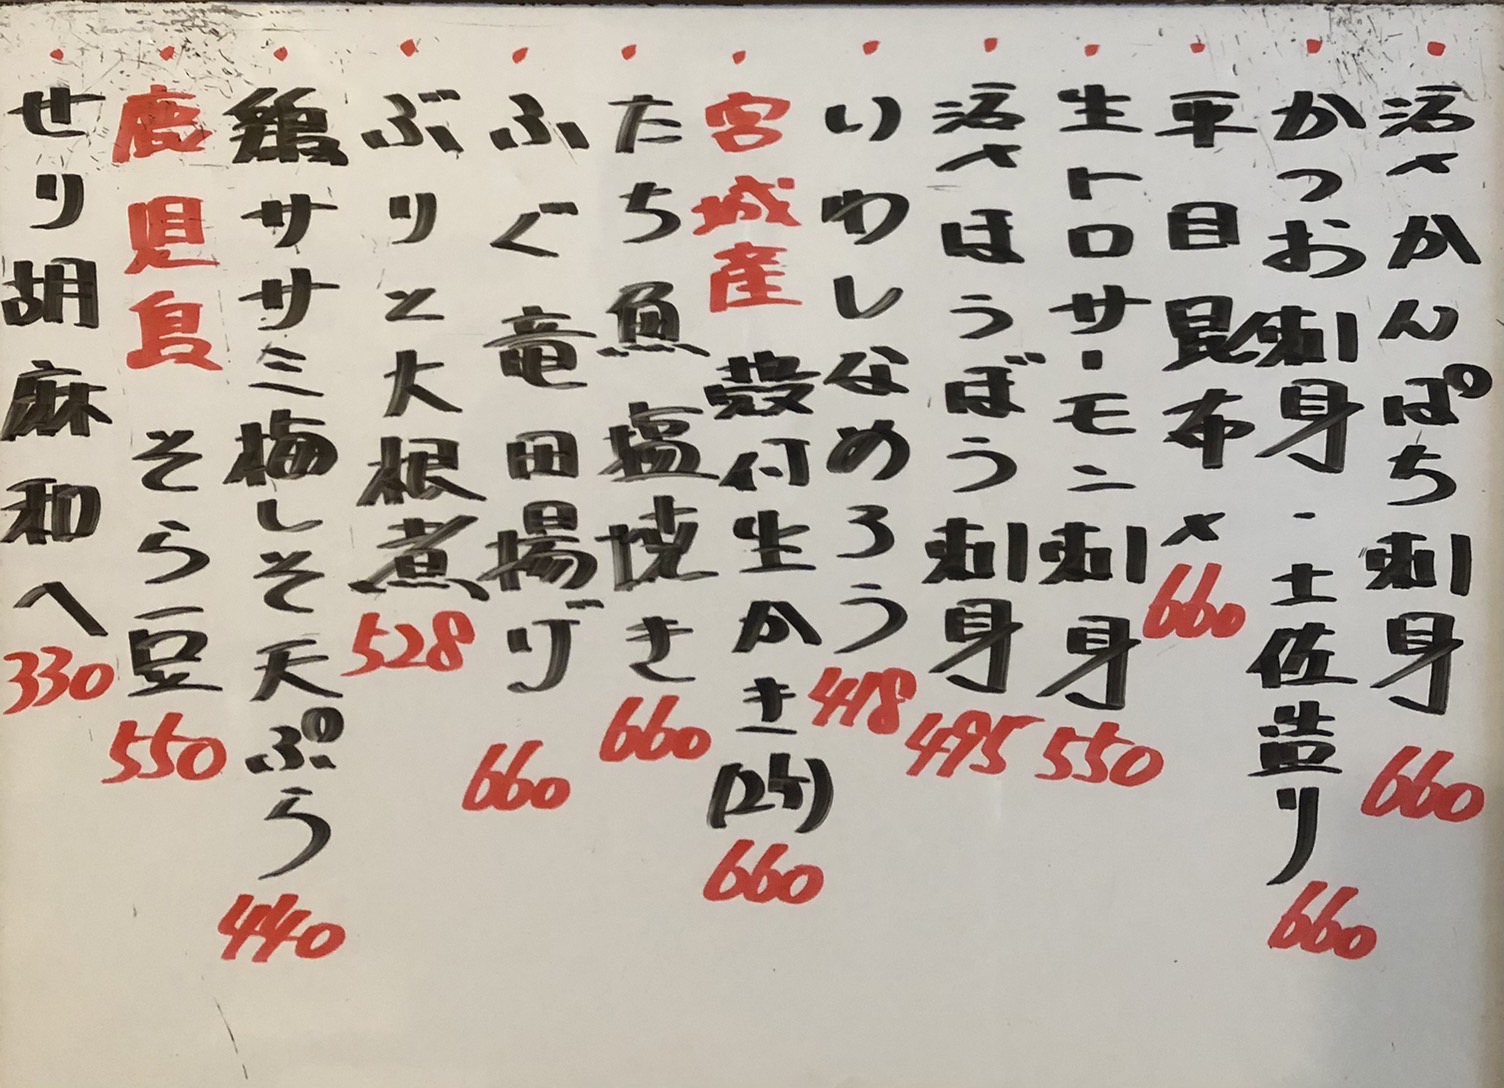 活〆かんぱち刺身 660
かつお刺身・土佐造り 660
平目昆布〆 660
生トロサーモン刺身 550
活〆ほうぼう刺身 495
いわしなめろう 418
宮城産 殻付生かき(2ケ) 660
たち魚塩焼き 660
ふぐ竜田揚げ 660
ぶりと大根煮 528
鶏ササミ梅しそ天ぷら 440
鹿児島 そら豆 550
せり胡麻和へ 330